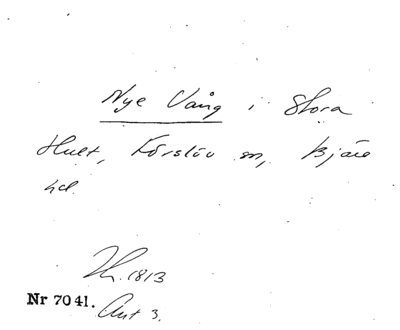 Nye Vång i Stora
Hult, Förslöv sn, Bjäre
hd.
Lh. 1813
Nr 7041.
Akt 3.